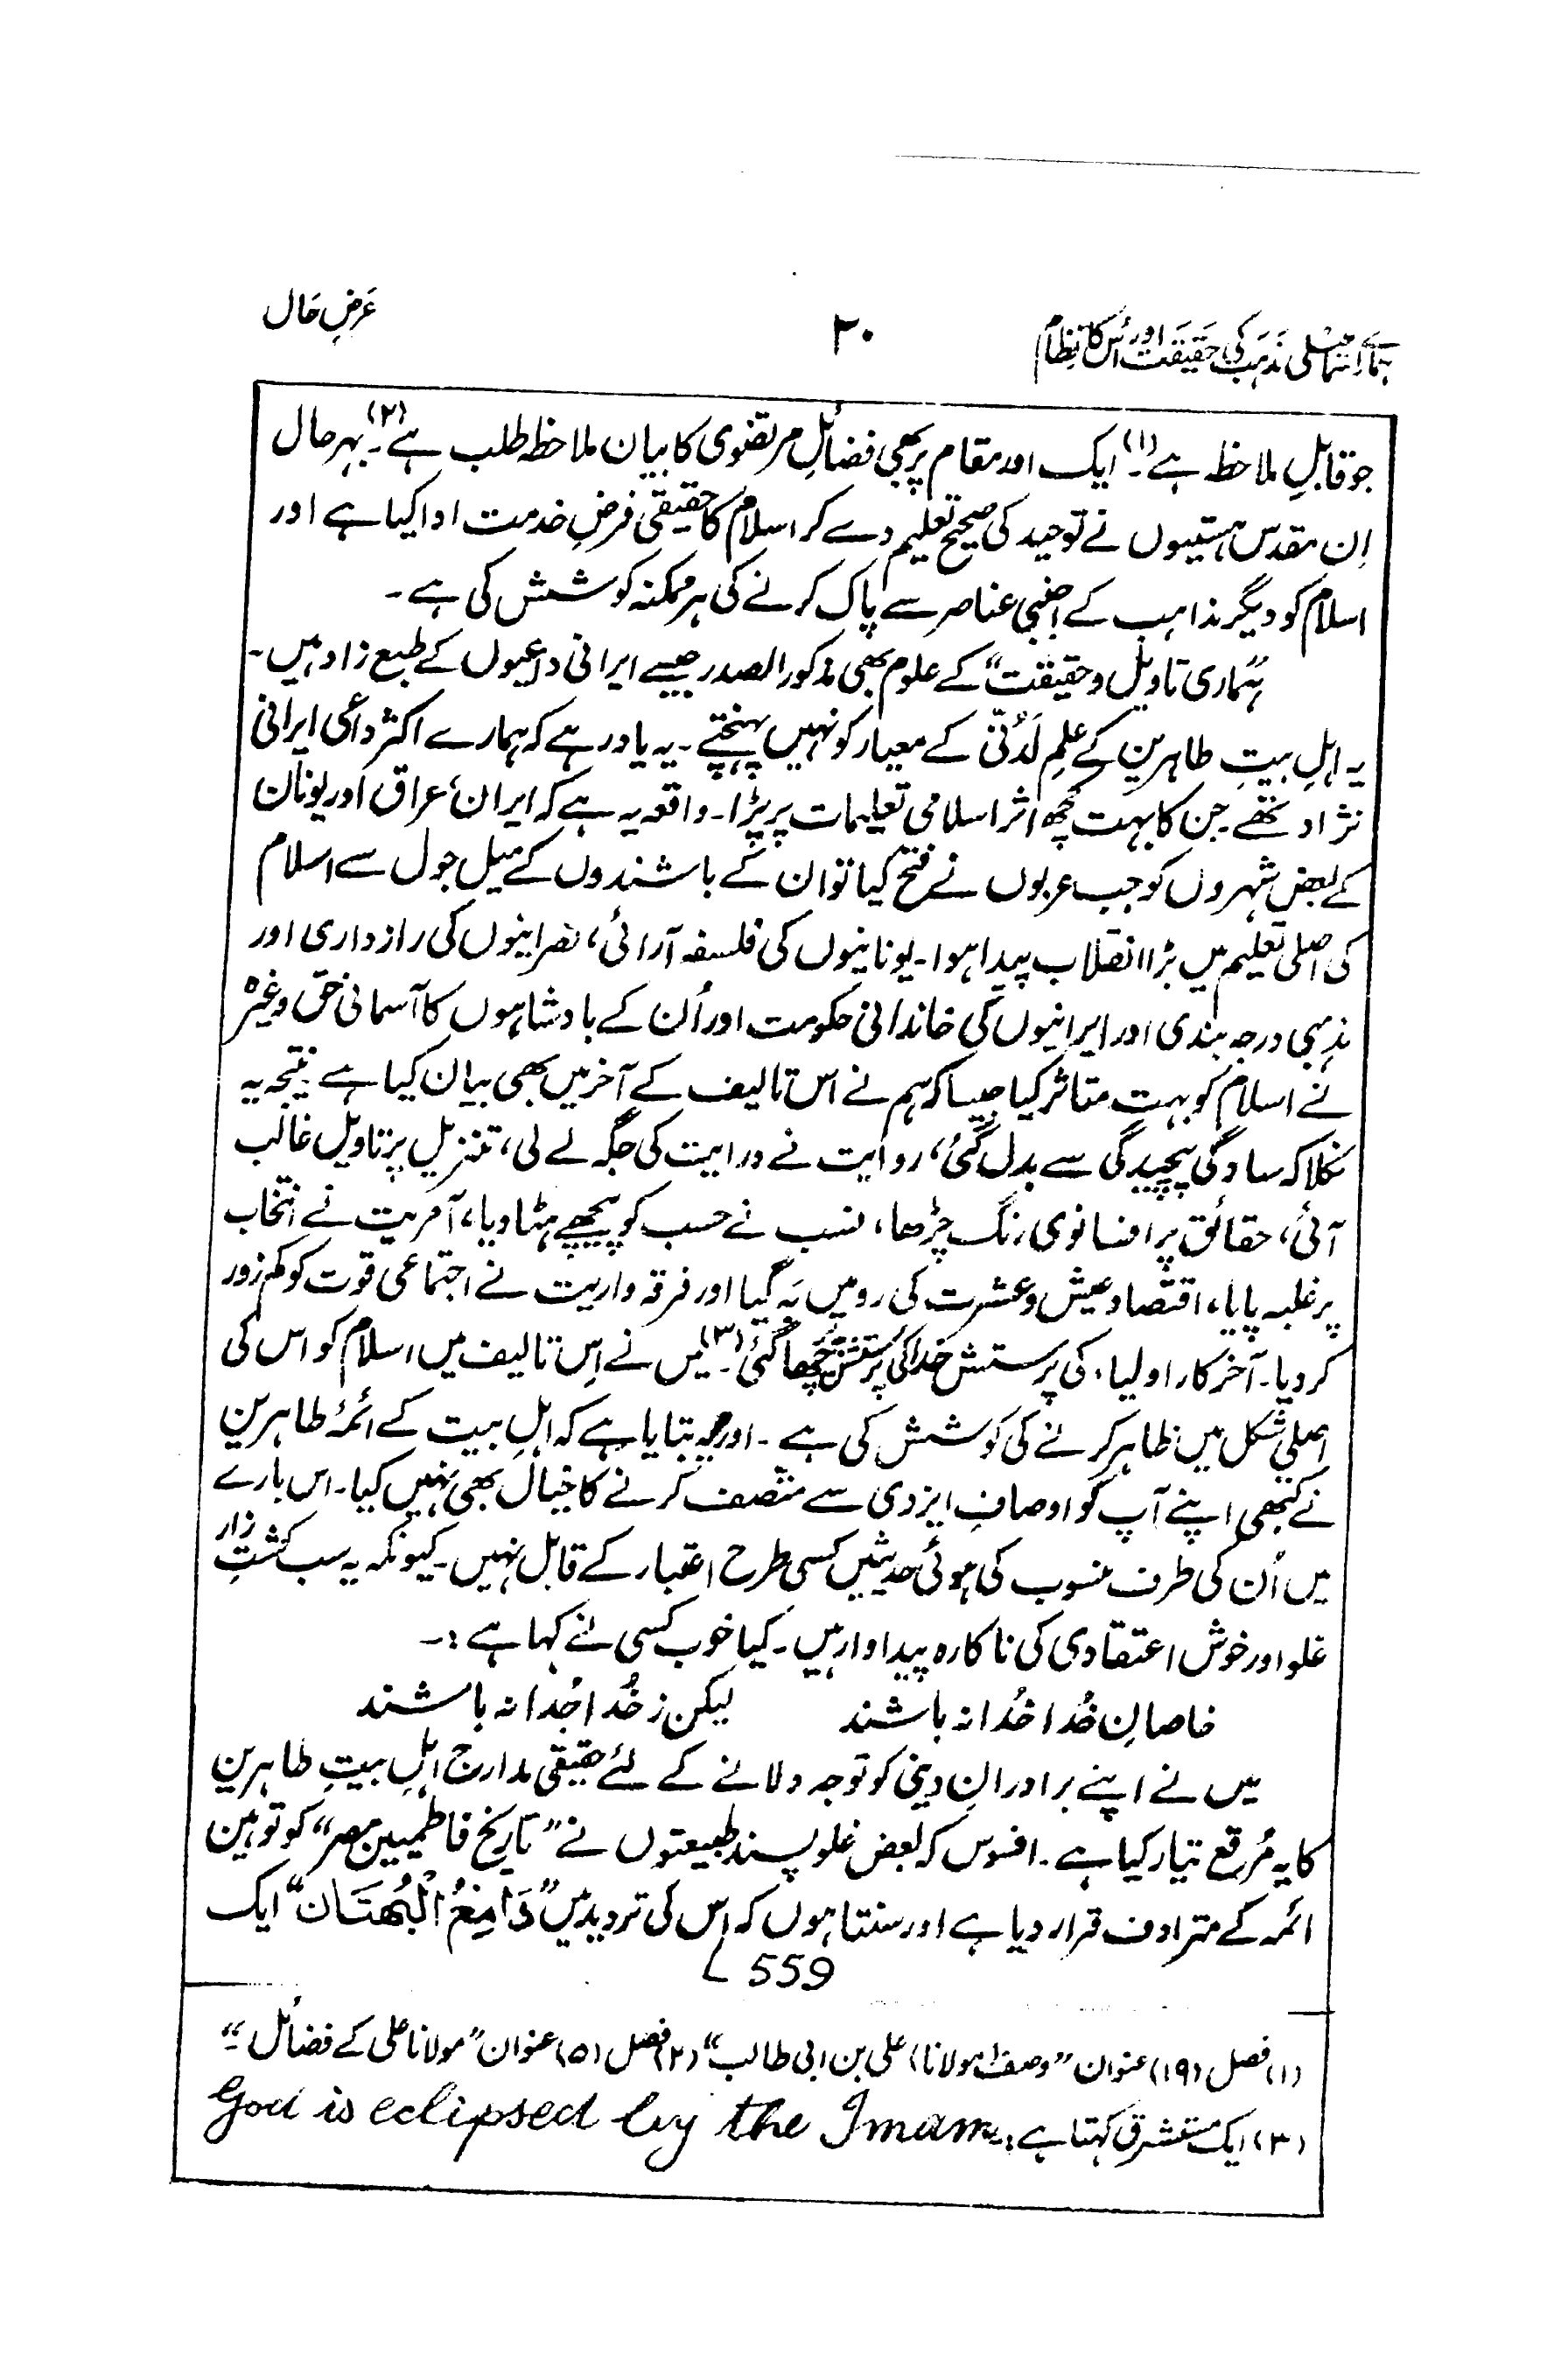 ہمارے اسماعیلی مذہب کی حقیقت اور اُس کا نظام
۲۰
عَرضِ حَال
جو قابلِ ملاحظہ ہے(۱)۔ ایک اور مقام پر بھی فضائلِ مرتضوی کا بیان ملاحظہ طلب ہے(۲)۔ بہر حال
اِن مقدس ہستیوں نے توحید کی صحیح تعلیم دے کر اسلام کا حقیقی فرضِ خدمت ادا کیا ہے اور
اسلام کو دیگر مذاہب کے اجنبی عناصر سے پاک کرنے کی ہر ممکنہ کوشش کی ہے۔
ہماری تاویل و حقیقت“ کے علوم بھی مذکور الصدر جیسے ایرانی داعیوں کے طبع زاد ہیں۔
یہ اہلِ بیتِ طاہرین کے علمِ لَدُنّی کے معیار کو نہیں پہنچتے۔ یہ یاد رہے کہ ہمارے اکثر داعی ایرانی
نژاد تھے جن کا بہت کچھ اثر اسلامی تعلیمات پر پڑا۔ واقعہ یہ ہے کہ ایران، عراق اور یونان
کے بعض شہروں کو جب عربوں نے فتح کیا تو ان کے باشندوں کے میل جول سے اسلام
کی اصلی تعلیم میں بڑا انقلاب پیدا ہوا۔ یونانیوں کی فلسفہ آرائی، نصرانیوں کی رازداری اور
مذہبی درجہ بندی اور ایرانیوں کی خاندانی حکومت اور اُن کے بادشاہوں کا آسمانی حق وغیرہ
نے اسلام کو بہت متاثر کیا جیسا کہ ہم نے اس تالیف کے آخر میں بھی بیان کیا ہے۔ نتیجہ یہ
نکلا کہ سادگی پیچیدگی سے بدل گئی، روایت نے درایت کی جگہ لے لی، تنزیل پر تاویل غالب
آئی، حقائق پر افسانوی رنگ چڑھا، نسب نے حسب کو پیچھے ہٹا دیا، آمریت نے انتخاب
پر غلبہ پایا، اقتصاد عیش و عشرت کی رو میں بَہ گیا اور فرقہ واریت نے اجتماعی قوت کو کم زور
کر دیا۔ آخر کار اولیاء کی پرستش خدا کی پرستش پر چھا گئی(۳)۔ میں نے اِس تالیف میں اسلام کو اس کی
اصلی شکل میں ظاہر کرنے کی کوشش کی ہے۔ اور یہ بتایا ہے کہ اہلِ بیت کے ائمۂ طاہرین
نے کبھی اپنے آپ کو اوصافِ ایزدی سے متّصف کرنے کا خیال بھی نہیں کیا۔ اس بارے
میں اُن کی طرف منسوب کی ہوئی حدیثیں کسی طرح اعتبار کے قابل نہیں۔ کیونکہ یہ سب کشتِ زار
غلو اور خوش اعتقادی کی ناکارہ پیداوار ہیں۔ کیا خوب کسی نے کہا ہے:۔
خاصانِ خُدا خُدا نہ باشند لیکن ز خُدا جُدا نہ باشند
میں نے اپنے برادرانِ دینی کو توجہ دلانے کے لئے حقیقی مدارج اہلِ بیتِ طاہرین
کا یہ مُرقع تیار کیا ہے۔ افسوس کہ بعض غلو پسند طبیعتوں نے ”تاریخ فاطمیین مصر“ کو توہین
ائمہ کے مترادف قرار دیا ہے اور سنتا ہوں کہ اس کی تردید میں ”دَامِغُ الْبُهتَان“ ایک
559
(۱) فصل (۱۹) عنوان ”وصف مولانا علی بن ابی طالب“ (۲) فصل (۵) عنوان ”مولانا علی کے فضائل“۔
(۳) ایک مستشرق کہتا ہے:۔ God is eclipsed by the Imam